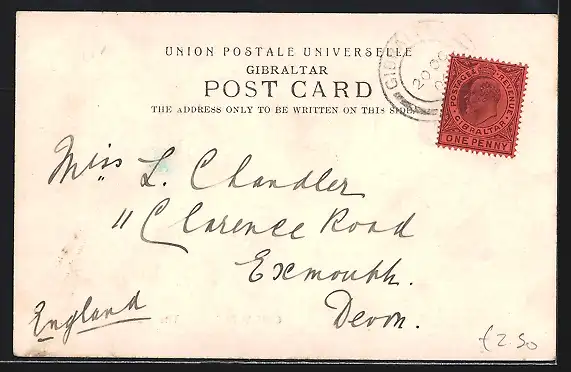 UNION POSTALE UNIVERSELLE
GIBRALTAR
POST CARD
THE ADDRESS ONLY TO BE WRITTEN ON THIS SIDE.
POSTAGE & REVENUE
GIBRALTAR
ONE PENNY
Miss L. Chandler
11 Clarence Road
Exmouth.
Devon.
England
£2.50